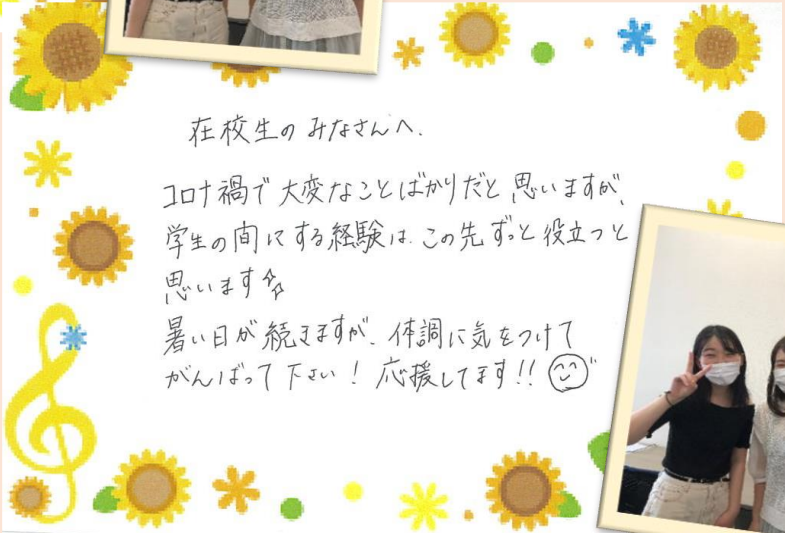 在校生のみなさんへ.
コロナ禍で大変なことばかりだと思いますが、
学生の間にする経験は、この先ずっと役立つと
思います
暑い日が続きますが、体調に気をつけて
がんばって下さい！応援してます!!